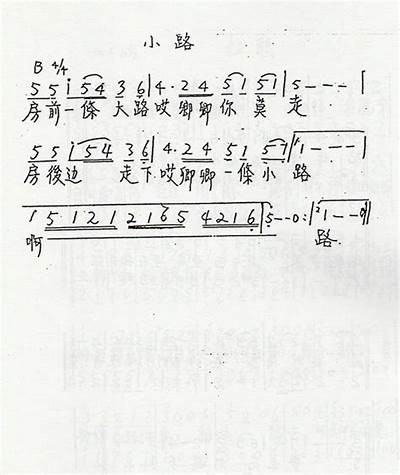 小路
B 4/4
5 5 i 5 4 3 6 | 4 · 2 4 5 1 5 1 | 5 - - - |
房前一條 大路哎卿卿你 莫 走
5 5 i 5 4 3 6 | 4 · 2 4 5 1 5 7 | 1 - - - |
房後边 走下哎卿卿一條小 路
1 5 1 2 1 2 1 6 5 4 2 1 6 | 5 - - 0 : | 2 1 - - 0 ||
啊 路.